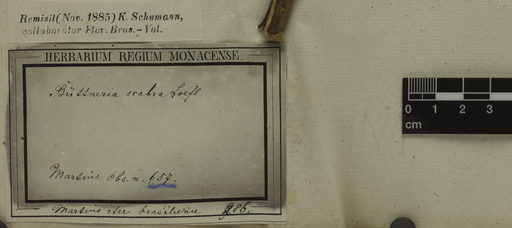 Remisit (Nov. 1885) K. Schumann,
collaborator Flor. Bras. – Vol.
HERBARIUM REGIUM MONACENSE.
Büttneria scabra Loefl
Martius Obs. n. 657.
Martius iter brasiliense 986.
0 1 2 3
cm